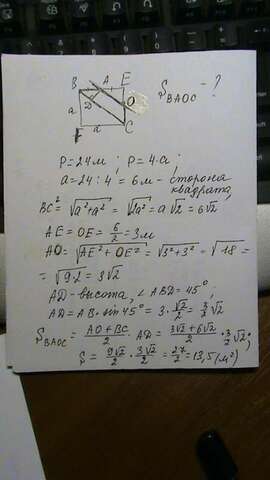 B A E
D O
S_BAOC - ?
a
C
F a
P=24м ; P=4·a;
a=24:4=6м - сторона
квадрата,
BC²=√a²+a² = √2a² = a√2 = 6√2,
AE=OE=6/2=3м
AO=√AE²+OE² = √3²+3² = √18 =
= √9·2 = 3√2
AD-высота, ∠ABD=45°;
AD=AB·sin45°=3·√2/2=3/2√2
S_BAOC = AO+BC/2 · AD = 3√2+6√2/2 · 3/2√2;
S = 9√2/2 · 3√2/2 = 27/2 = 13,5 (м²)